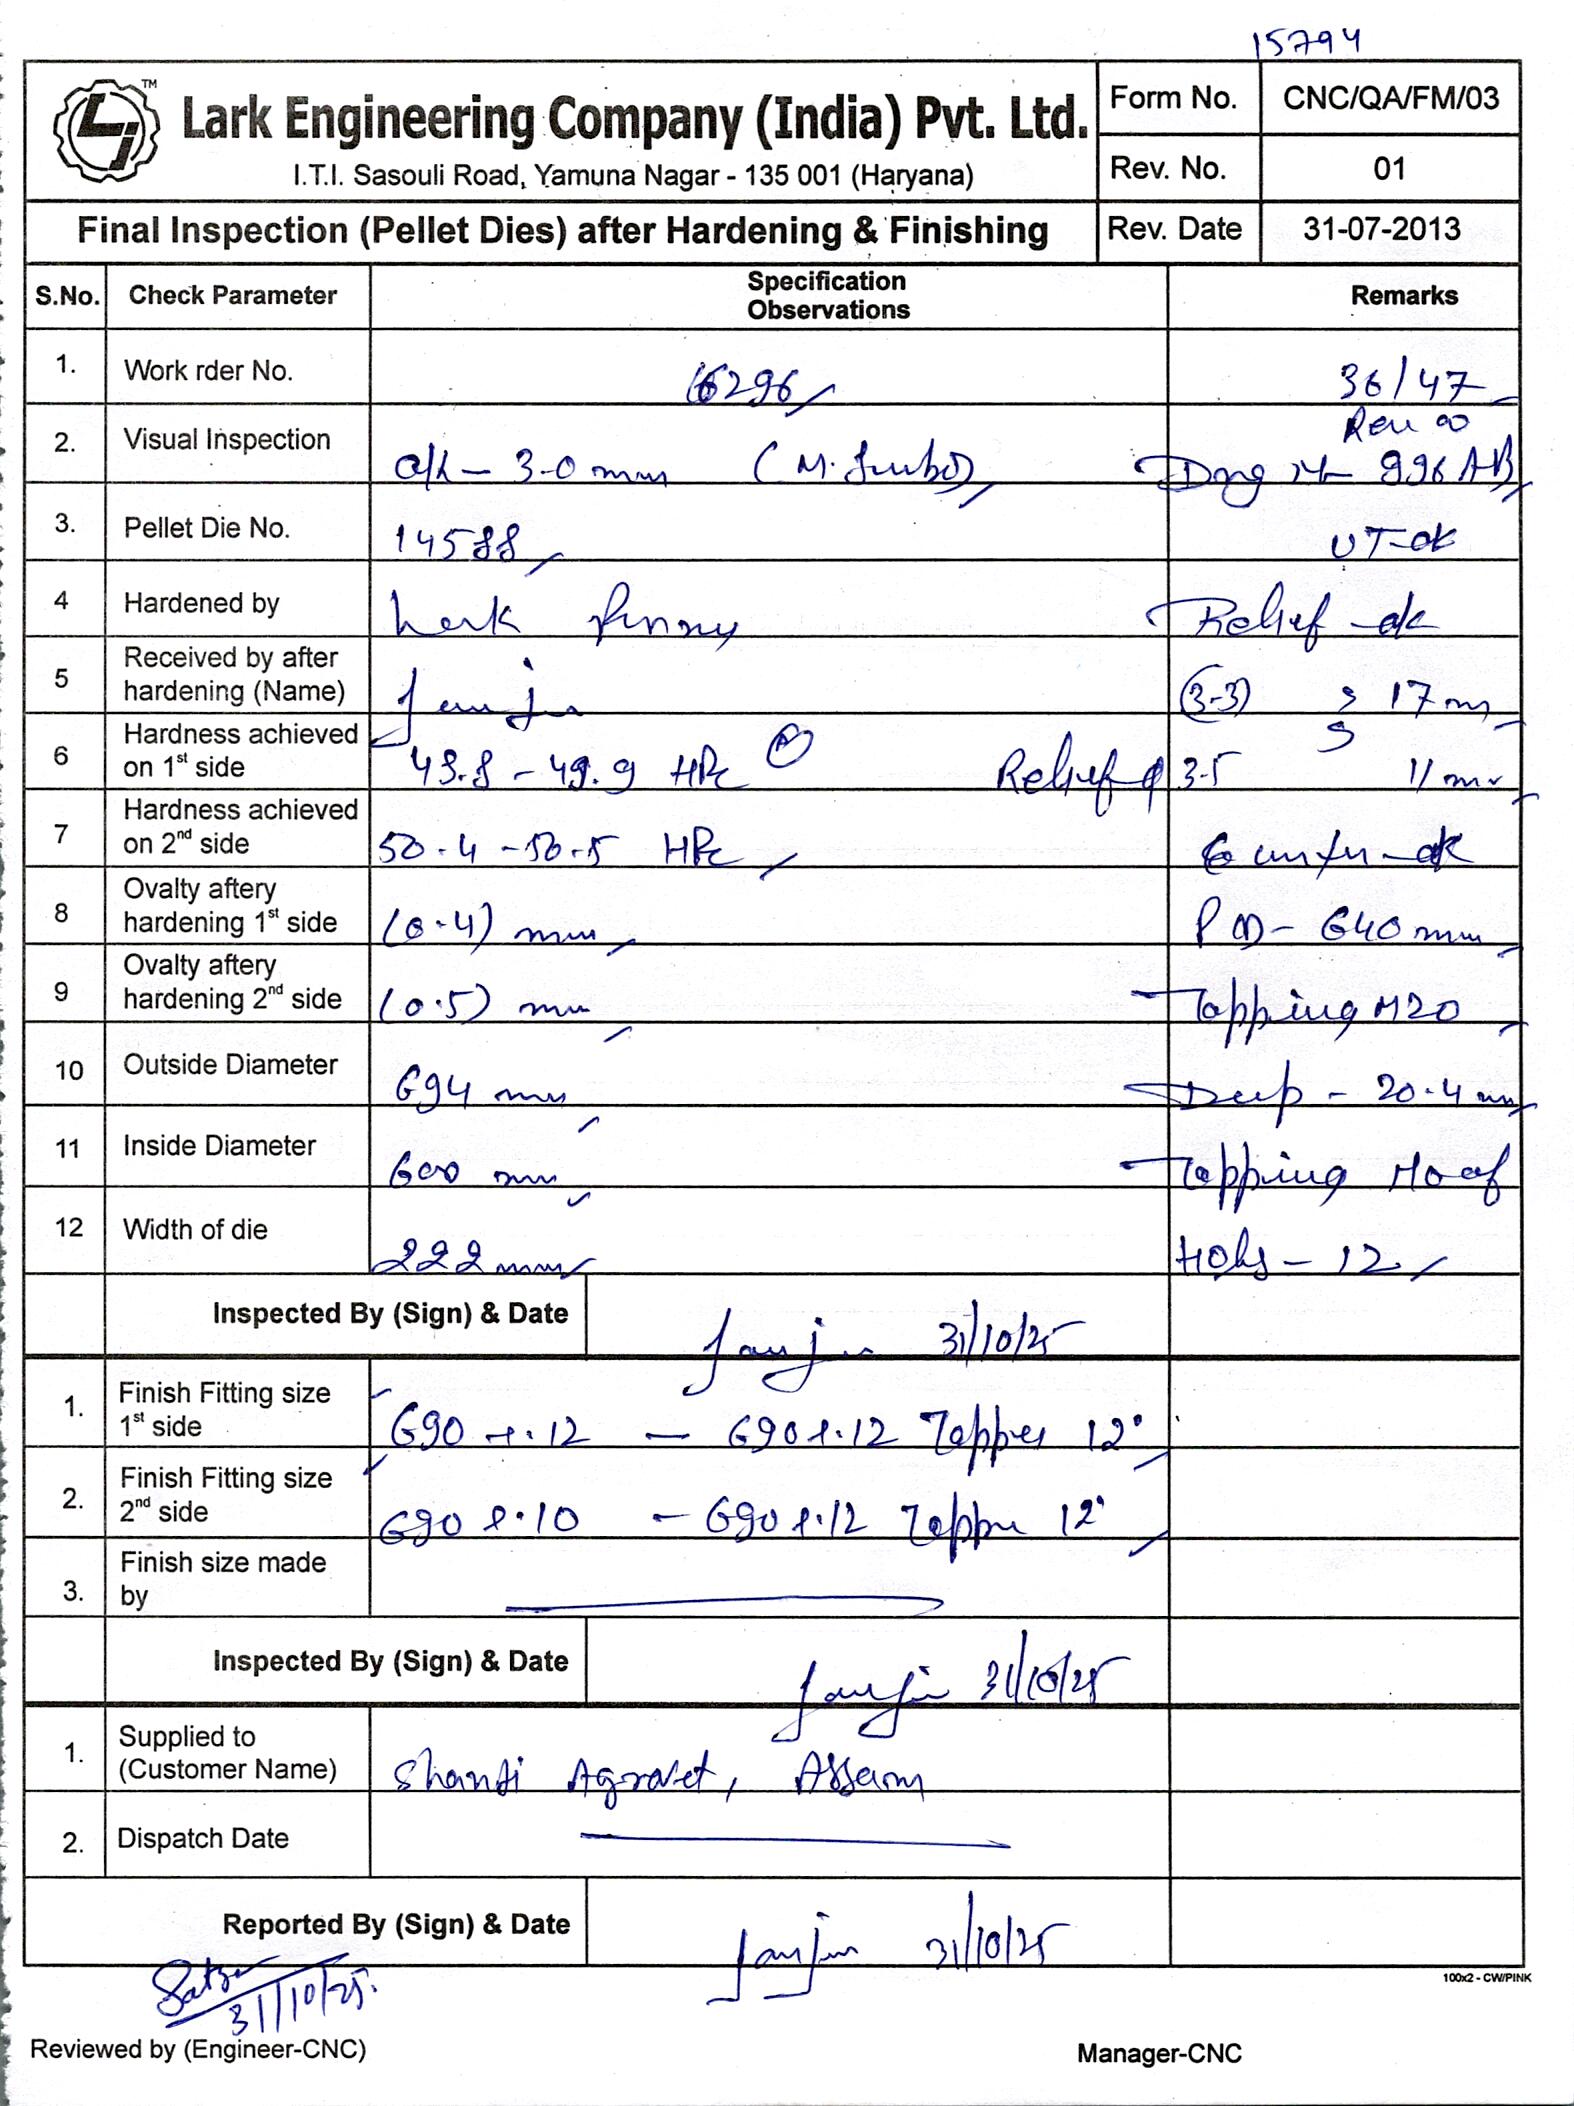 15794
TM
Lark Engineering Company (India) Pvt. Ltd.
I.T.I. Sasouli Road, Yamuna Nagar - 135 001 (Haryana)
Form No. CNC/QA/FM/03
Rev. No. 01
Final Inspection (Pellet Dies) after Hardening & Finishing
Rev. Date 31-07-2013
S.No. Check Parameter Specification Observations Remarks
1. Work rder No. 16296 36/47
Rev 00
2. Visual Inspection 3.0 mm Drg 996 AB
3. Pellet Die No. 14588 UT-ok
4 Hardened by Lark Relief - ok
5 Received by after hardening (Name) (3-3) 17 mm
6 Hardness achieved on 1st side 49.9 HRc Relief φ 3.5 11 mm
7 Hardness achieved on 2nd side 50.4 - 50.5 HRc ok
8 Ovalty aftery hardening 1st side (0.4) mm PCD - 640 mm
9 Ovalty aftery hardening 2nd side (0.5) mm Tapping M20
10 Outside Diameter 694 mm Deep - 20.4 mm
11 Inside Diameter 600 mm Tapping No of
12 Width of die 222 mm Holes - 12
Inspected By (Sign) & Date 31/10/25
1. Finish Fitting size 1st side 690 +.12 - 690 +.12 Tapper 12°
2. Finish Fitting size 2nd side 690 +.10 - 690 +.12 Tapper 12°
3. Finish size made by
Inspected By (Sign) & Date 31/10/25
1. Supplied to (Customer Name) Shanti Agrovet, Assam
2. Dispatch Date
Reported By (Sign) & Date 31/10/25
100x2 - CW/PINK
31/10/25.
Reviewed by (Engineer-CNC) Manager-CNC